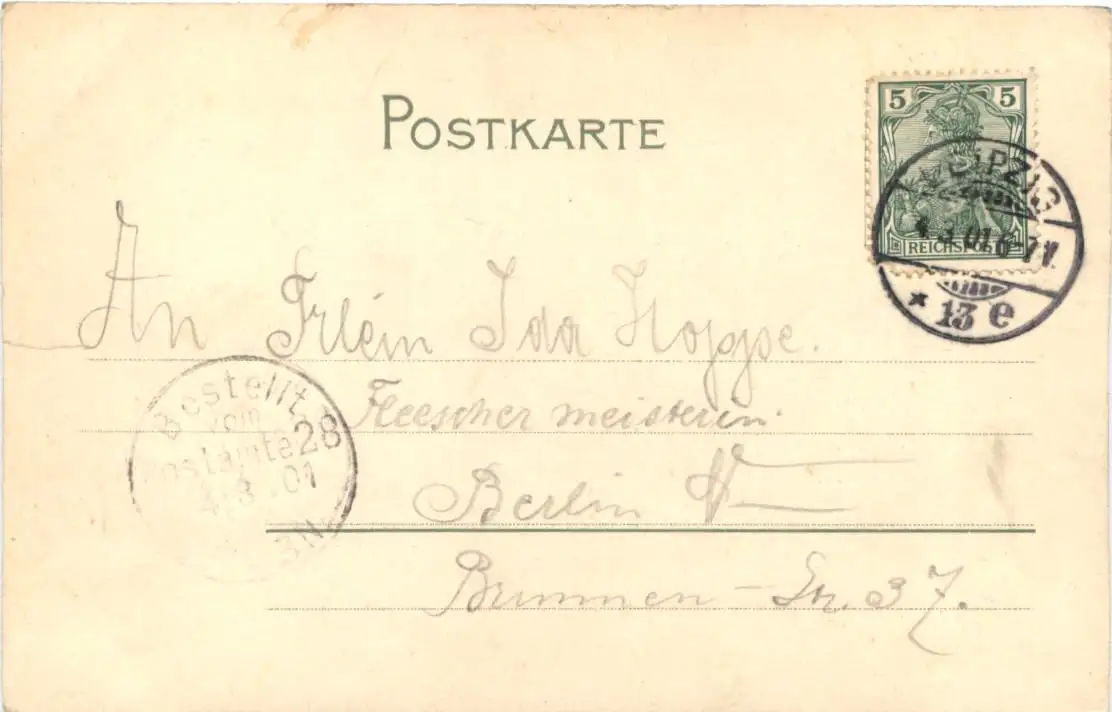 POSTKARTE
5 5
REICHSPOST
LEIPZIG
4.3.01 6-7V.
* 13 e
An Frlein Ida Hoppe.
Fleescher meisterin
Berlin N
Brunnen-Str. 37.
Bestellt
vom
Postamte 28
4.3.01